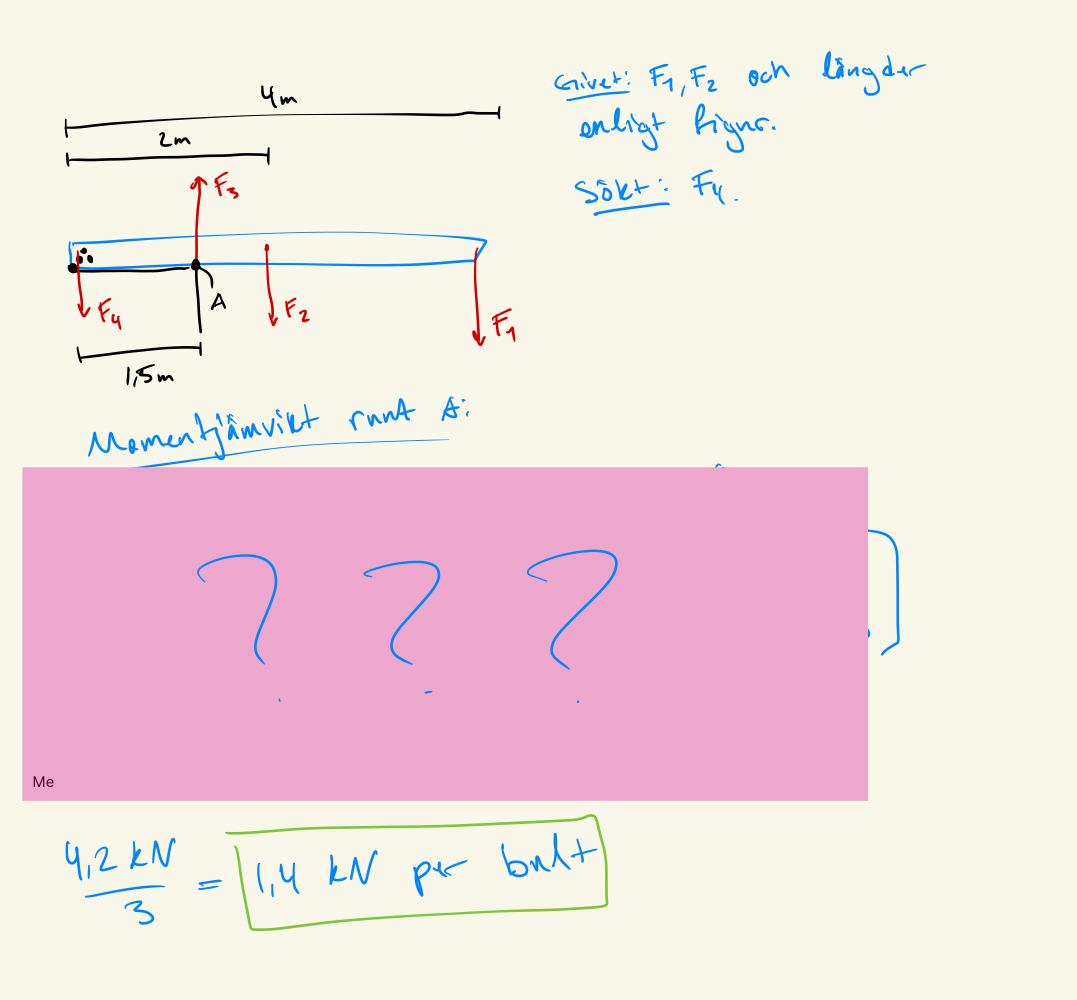 4m
2m
F₃
A
F₄
F₂
F₁
1,5m
Givet: F₁, F₂ och längder
enligt figur.
Sökt: F₄.
Momentjämvikt runt A:
? ? ?
Me
4,2 kN
3
= 1,4 kN per bult